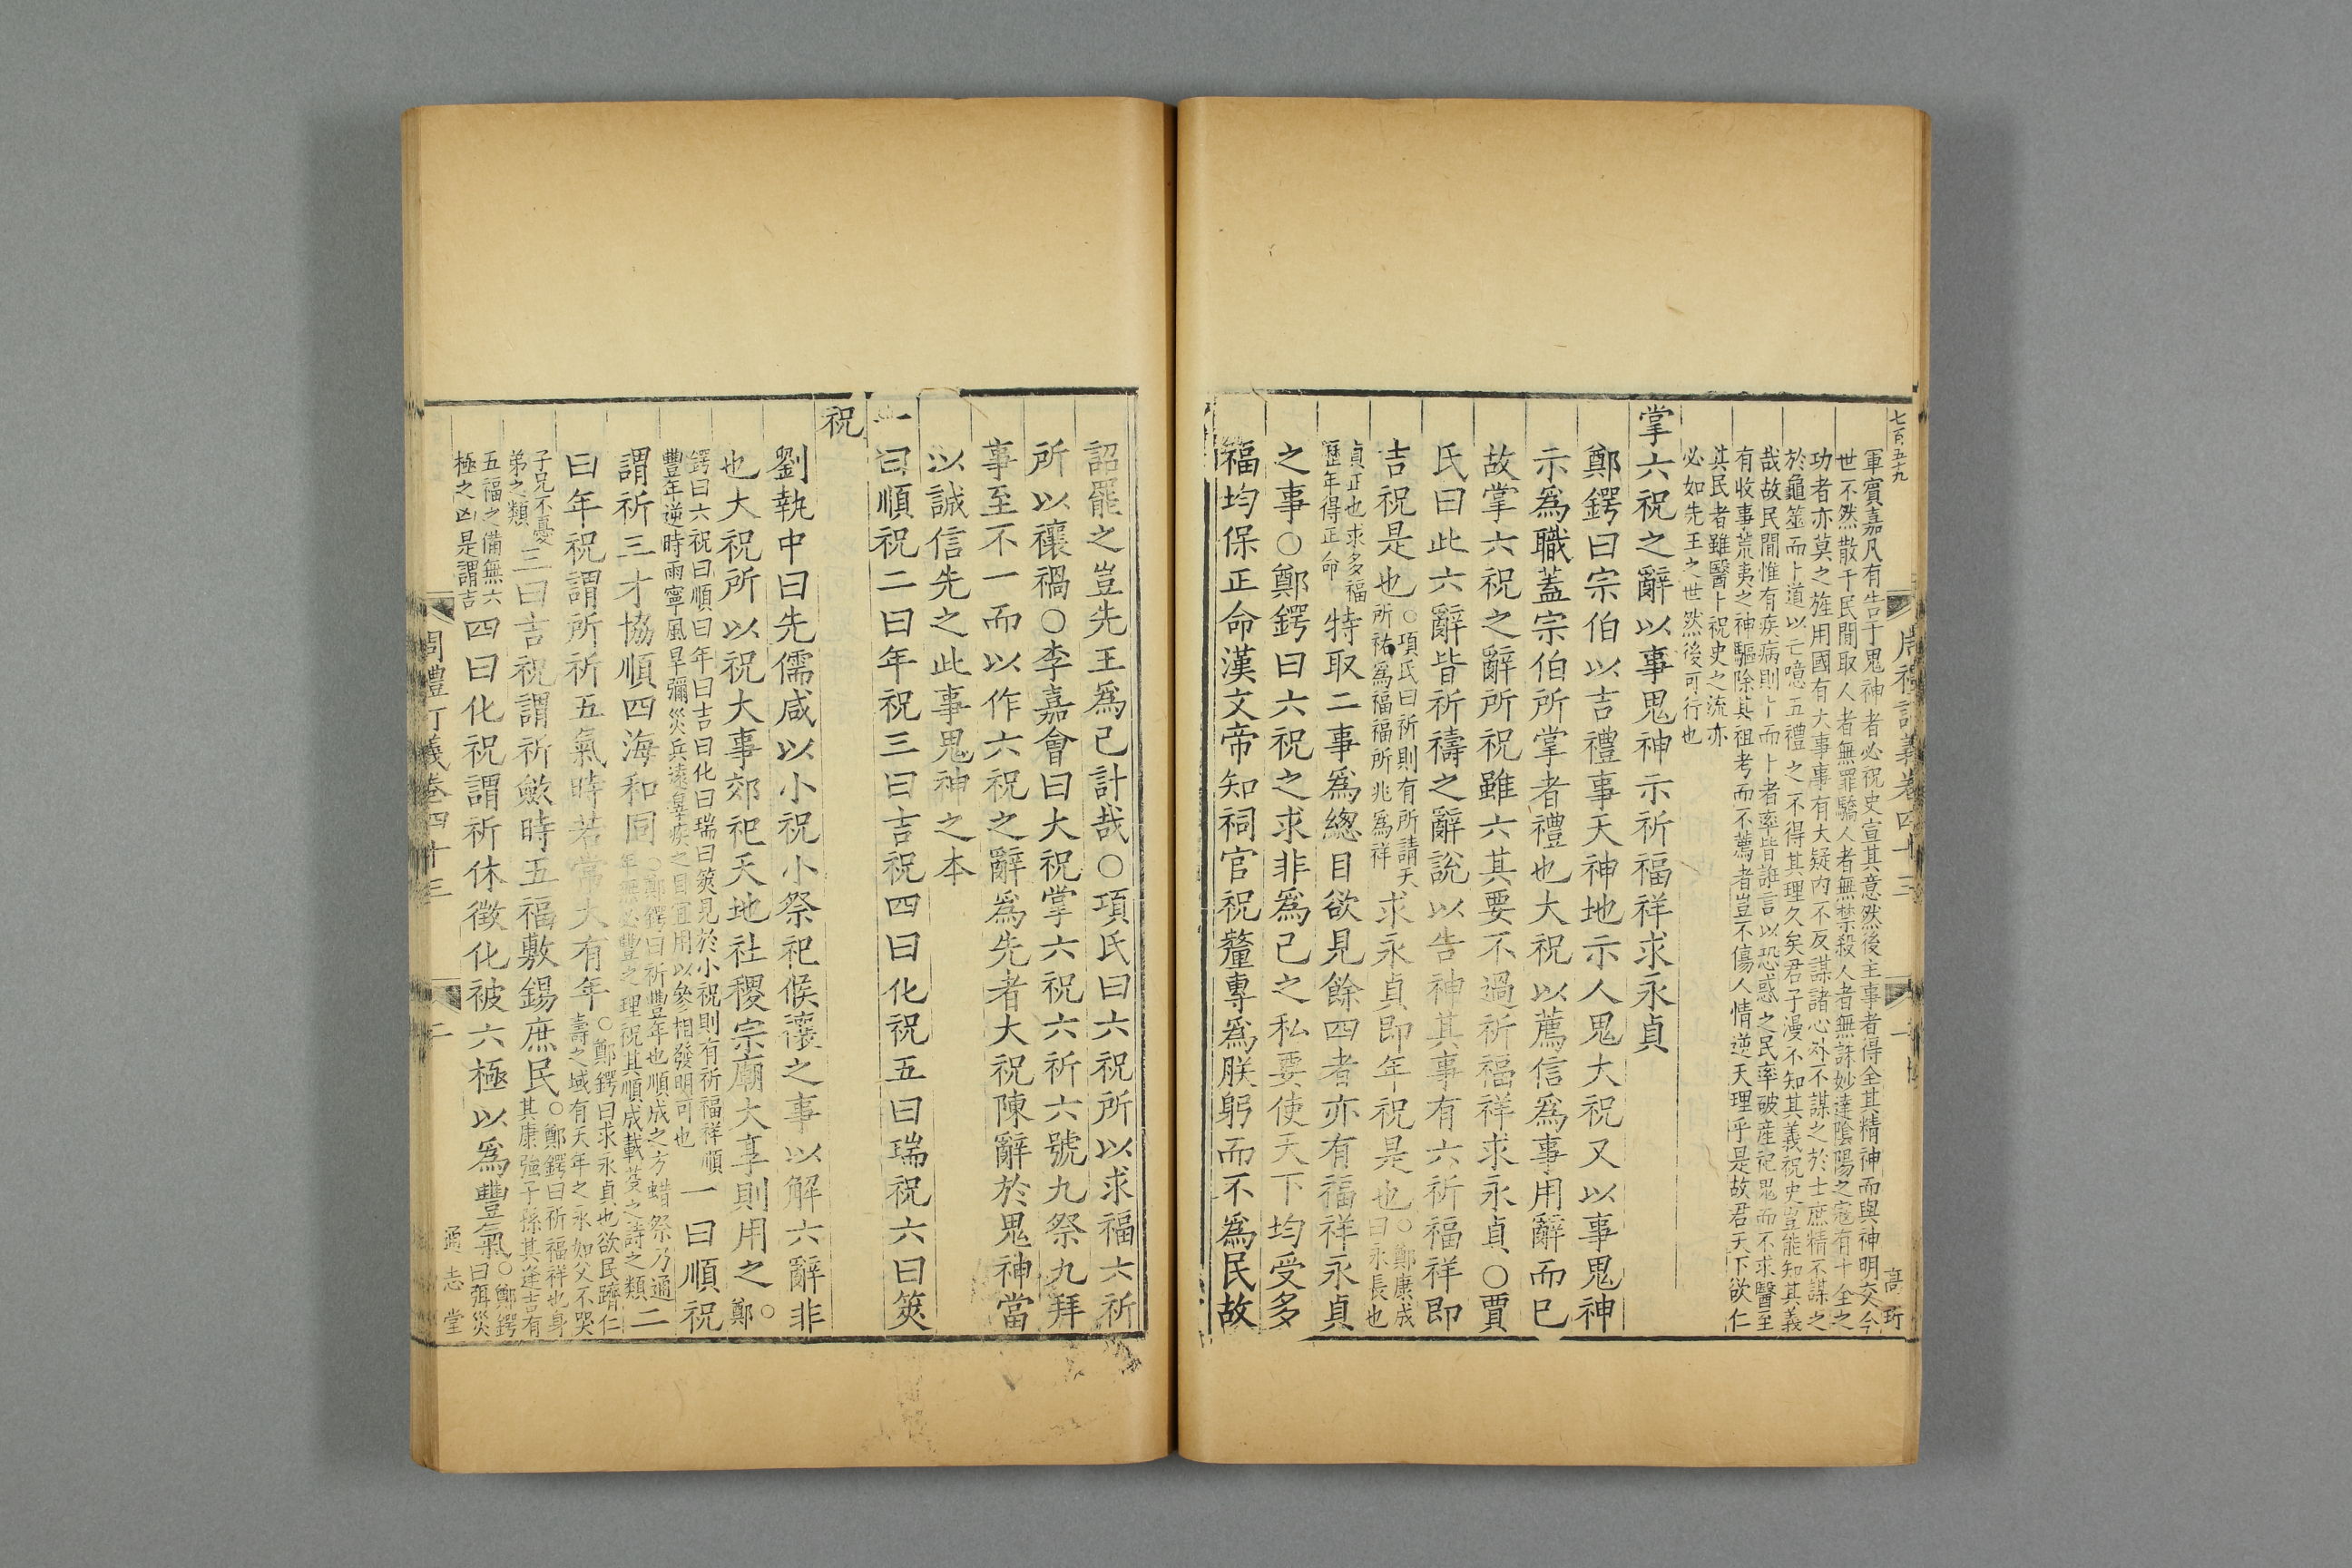 七百五十九
周禮訂義卷四十三
一
高珩
軍賓嘉凡有告于鬼神者必祝史宣其意然後主事者得全其精神而與神明交今
世不然散于民間取人者無罪驕人者無禁殺人者無誅妙達陰陽之寇有十全之
功者亦莫之旌用國有大事事有大疑内不反謀諸心外不謀之於士庶精不謀之
於龜筮而卜道以亡噫五禮之不得其理久矣君子漫不知其義祝史豈能知其義
哉故民間惟有疾病則卜而卜者率皆誰言以恐惑之民率破産祀鬼而不求醫至
有收事荒夷之神驅除其祖考而不薦者豈不傷人情逆天理乎是故君天下欲仁
其民者雖醫卜祝史之流亦
必如先王之世然後可行也
掌六祝之辭以事鬼神示祈福祥求永貞
鄭鍔曰宗伯以吉禮事天神地示人鬼大祝又以事鬼神
示爲職蓋宗伯所掌者禮也大祝以薦信爲事用辭而已
故掌六祝之辭所祝雖六其要不過祈福祥求永貞○賈
氏曰此六辭皆祈禱之辭說以告神其事有六祈福祥即
吉祝是也○項氏曰祈則有所請天所祐爲福福所兆爲祥求永貞即年祝是也○鄭康成曰永長也
貞正也求多福歷年得正命特取二事爲總目欲見餘四者亦有福祥永貞
之事○鄭鍔曰六祝之求非爲己之私要使天下均受多
福均保正命漢文帝知祠官祝釐專爲朕躬而不爲民故
詔罷之豈先王爲己計哉○項氏曰六祝所以求福六祈
所以禳禍○李嘉會曰大祝掌六祝六祈六號九祭九拜
事至不一而以作六祝之辭爲先者大祝陳辭於鬼神當
以誠信先之此事鬼神之本
一曰順祝二曰年祝三曰吉祝四曰化祝五曰瑞祝六曰筴
祝
劉執中曰先儒咸以小祝小祭祀候禳之事以解六辭非
也大祝所以祝大事郊祀天地社稷宗廟大享則用之○鄭
鍔曰六祝曰順曰年曰吉曰化曰瑞曰筴見於小祝則有祈福祥順豐年逆時雨寧風旱彌烖兵遠辠疾之目宜用以參相發明可也一曰順祝
謂祈三才協順四海和同○鄭鍔曰祈豐年也順成之方蜡祭乃通年無必豐之理祝其順成載芟之詩之類二
曰年祝謂所祈五氣時若常大有年○鄭鍔曰求永貞也欲民躋仁壽之域有天年之永如父不哭
子兄不憂弟之類三曰吉祝謂祈斂時五福敷錫庶民○鄭鍔曰祈福祥也身其康強子孫其逢吉有
五福之備無六極之凶是謂吉四曰化祝謂祈休徵化被六極以爲豐氣○鄭鍔曰弭災
周禮訂義卷四十三
二
通志堂